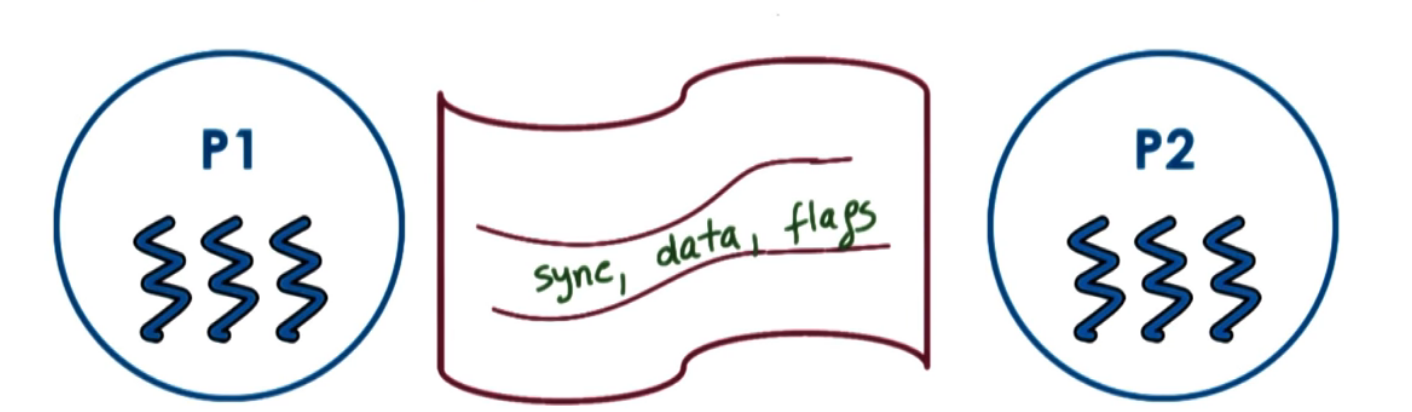 P1
sync, data, flags
P2